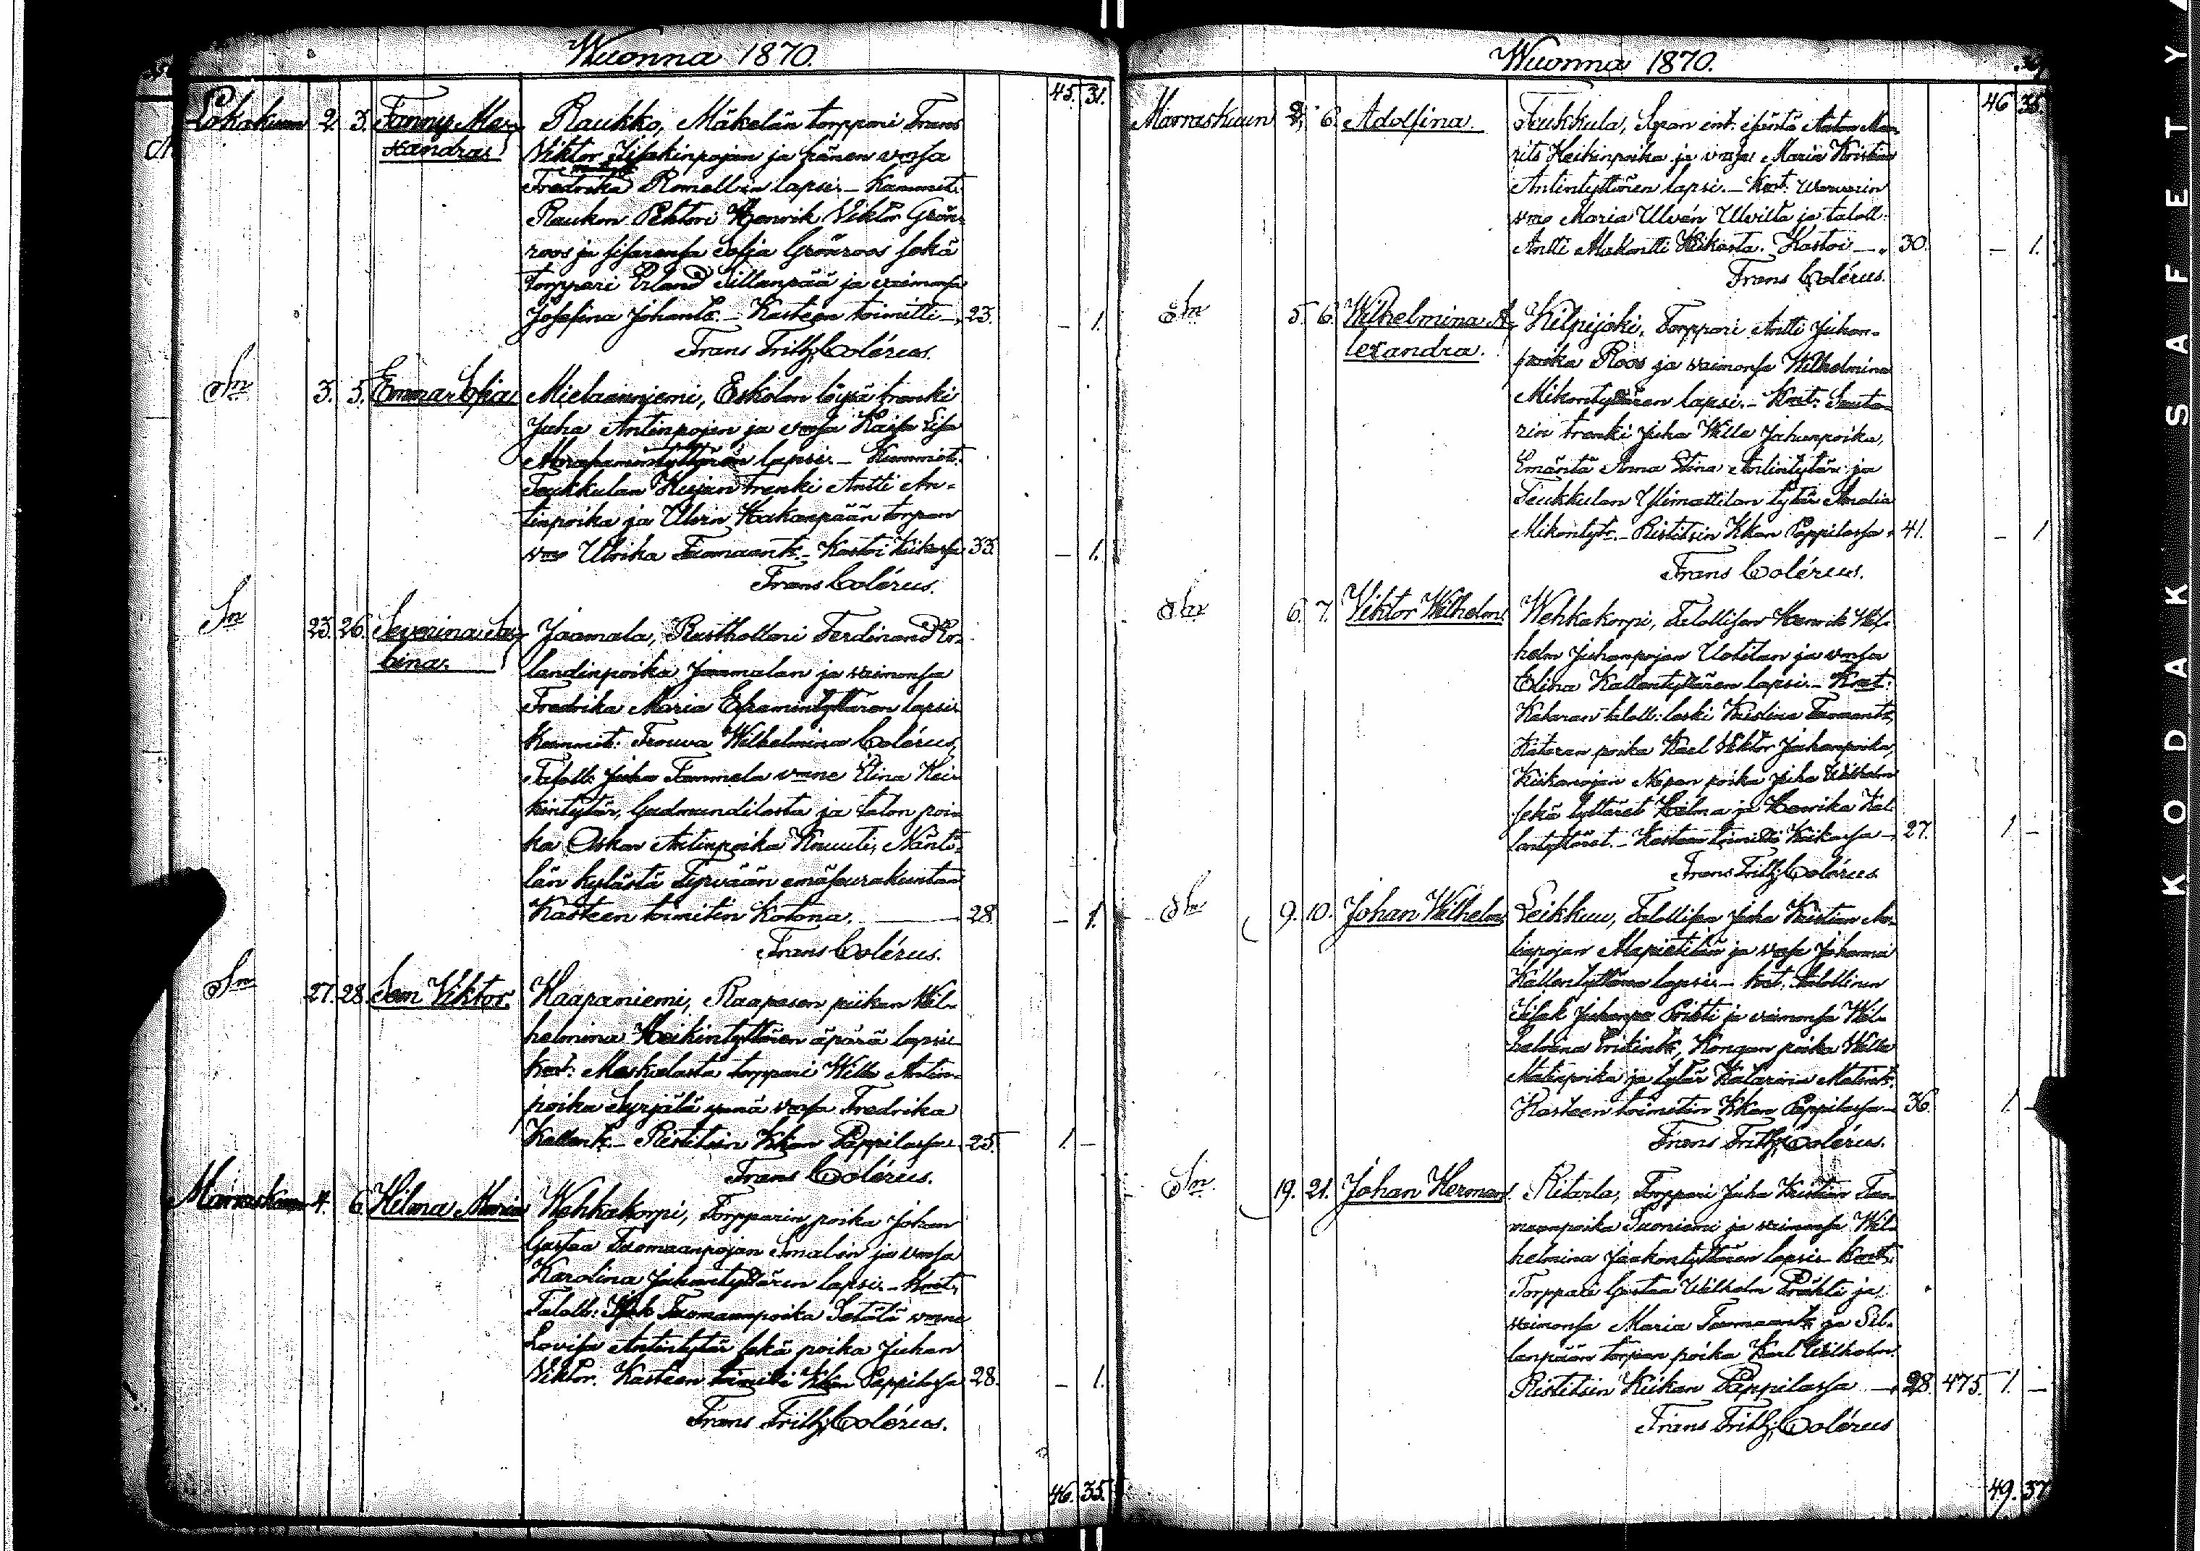 Wuonna 1870.
45. 31.
Lokakuun 2. 3. Fanny Alexandra.
Raukko, Mäkelän torppari Frans
Viktor Iisakinpojan ja hänen vmsa
Fredrika Romellin lapsi. – Kummit:
Raukon Pehtori Henrik Viktor Grön-
roos ja sisarensa Sofia Grönroos sekä
torppari Erland Sillanpää ja vaimonsa
Josefina Johant:. – Kasteen toimitti – 23. – 1.
Frans Fritz Colérus.
Sm 3. 5. Emma Sofia
Mielaanniemi, Eskolan löysä trenki
Juha Antinpojan ja vmsa Kaisa Lisa
lapsi. – Kummit:
Teukkulan Kujan trenki Antti An-
tinpoika ja Ulvin Hakanpään torpan
vmo Ulrika Tuomaant:. – Kastoi Kiikassa 33. – 1.
Frans Colérus.
Sm 23. 26. Severina Sabina.
Jaamala, Rusthollari Ferdinand Ro-
landinpoika Jaamalan ja vaimonsa
Fredrika Maria Eframintyttären lapsi.
Kummit: Frouva Wilhelmina Colérus,
Taloll: Juha Tammela vmne Elina Hei-
kintytär, Gudmundilasta ja talon poi-
ka Oskar Antinpoika Knuuti, Nänti-
län kylästä Tyrvään emäseurakuntaa
Kasteen toimitin Kotona. – 28. – 1.
Frans Colérus.
Sm 27. 28. Sem Viktor.
Haapaniemi, Raapasen piikan Wil-
helmina Heikintyttären äpärä lapsi.
kmt: Meskalasta torppari Wille Antin-
poika Syrjälä ynnä vmsa Fredrika
Kallent:. – Ristitsin Kkan Pappilassa 25. 1. –
Frans Colérus.
Marraskuun 4. 6. Hilma Maria
Wehkakorpi, Torpparin poika Johan
Gustaa Tuomaanpojan Smalin ja vmsa
Karolina Juhantyttären lapsi. – kmt;
Taloll: Isak Tuomaanpoika Setälä vmne
Lovisa Antintytär sekä poika Juhan
Viktor. Kasteen toimitti Kkan Pappilassa 28. – 1.
Frans Fritz Colérus.
46. 35.
Wuonna 1870.
46 35
Marraskuun 6. Adolfina.
Teukkula, Sepan Anton Mau-
rits Heikinpoika ja vmsa Maria Kristina
Antintyttären lapsi. – Kmt:
vmo Maria Ulvén Ulvilta ja taloll:
Antti Makontti Kiikasta. Kastoi – 30. – 1.
Frans Colérus.
Sm 5. 6. Wilhelmina Alexandra.
Kilpijoki, Torppari Antti Juhan-
poika Roos ja vaimonsa Wilhelmina
Mikontyttären lapsi. – Kmt: Sauta-
rin trenki Juha Wille Juhanpoika,
Emäntä Anna Stina Antintytär ja
Teukkulan Ylimattilan tytär Amalia
Mikontyt:. – Ristitsin Kkan Pappilassa 41. – 1
Frans Colérus.
Sm 6. 7. Viktor Wilhelm
Wehkakorpi, Talollisen Henrik Wil-
helm Juhanpojan Uotilan ja vmsa
Elina Kallentyttären lapsi. – Kmt:
Kataran taloll: leski Kristina Tuomaant:
Kataran poika Karl Viktor Juhanpoika,
Kiikanojan Nepan poika Juha Wilhelm
sekä tyttäret Hilma ja Henrika Kal-
lentyttäret. – Kasteen toimitti Kiikassa – 27. 1. –
Frans Fritz Colérus.
Sm 9. 10. Johan Wilhelm
Leikkuu, Talollisen Juha Kristian An-
tinpojan Mapietilän ja vmsa Johanna
Kallentyttären lapsi. – kmt: Talollinen
Iisak Juhanpo: Pirtti ja vaimonsa Wil-
helmina Erikint:, Kongan poika Wille
Matinpoika ja tytär Katarina Matint:.
Kasteen toimitin Kkan Pappilassa – 36. 1. –
Frans Fritz Colérus.
Sm 19. 21. Johan Herman
Ritarla, Torppari Juha Kristian Tuo-
maanpoika Suoniemi ja vaimonsa Wil-
helmina Jaakontyttären lapsi. – Kmt:
Torppari Gustaa Wilhelm Prihti ja
vaimonsa Maria Tuomaant: ja Sil-
lanpään torpan poika Karl Wilhelm.
Ristitsin Kiikan Pappilassa – 28. 475. 1. –
Frans Fritz Colérus
49. 37
KODAK SAFETY